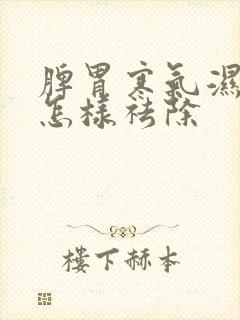 脾胃寒气濕
怎樣祛除
樓下赫本